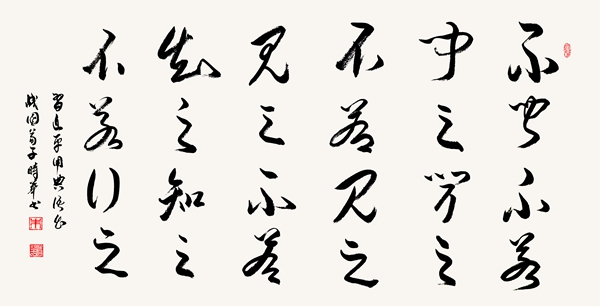 不闻不若
闻之闻之
不若见之
见之不若
知之知之
不若行之
習近平用典源自
战国荀子